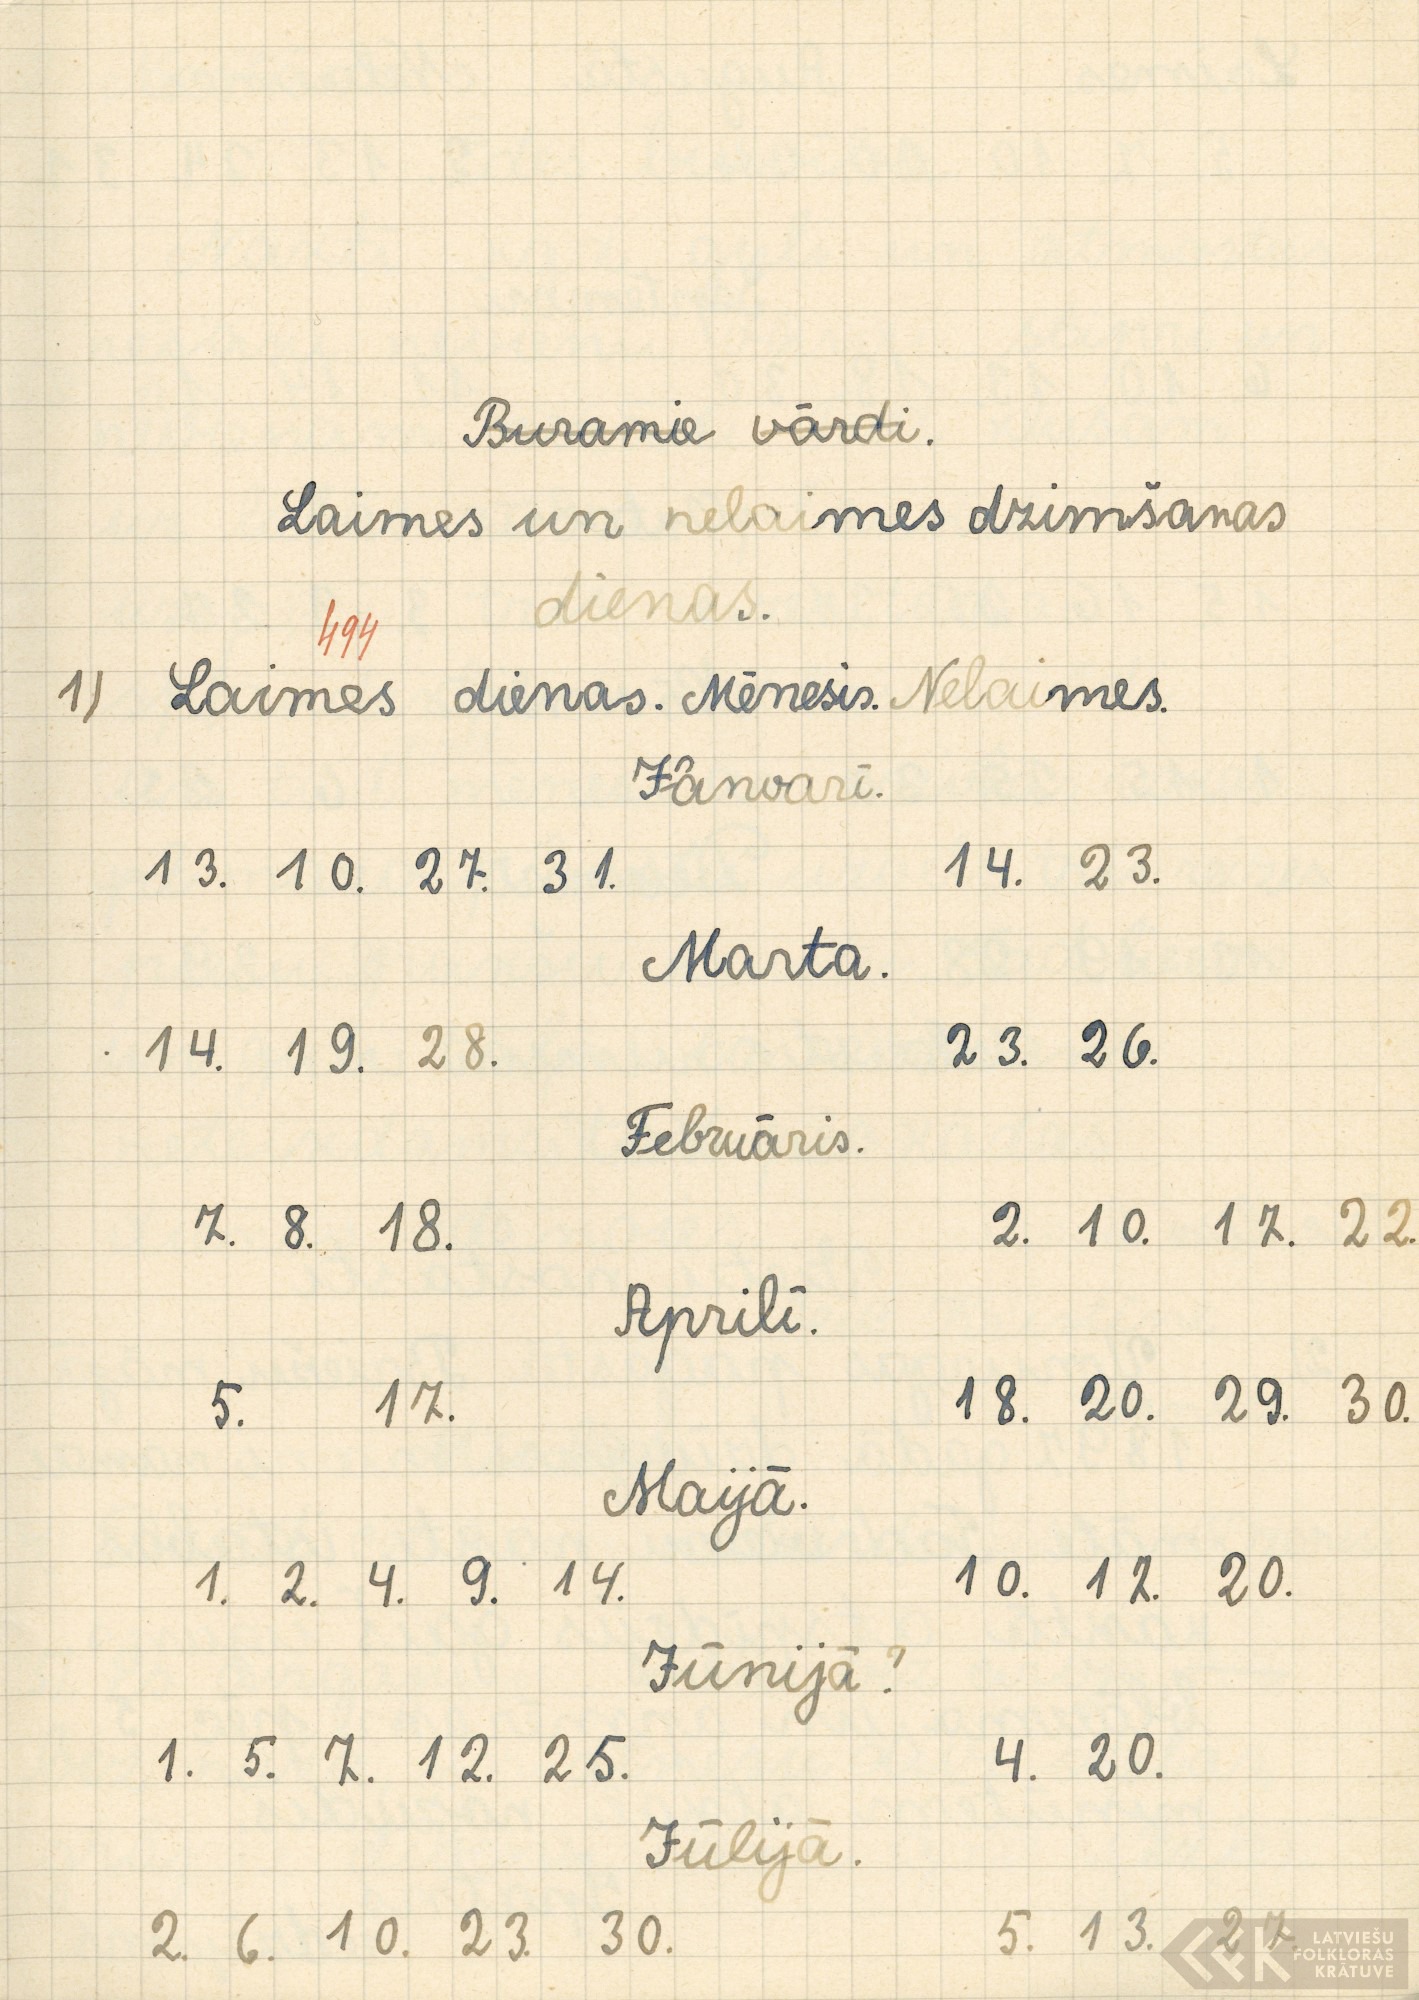 Buramie vārdi.
Laimes un nelaimes dzimšanas
dienas.
494
1) Laimes dienas. Mēnesis. Nelaimes.
Jânvarī.
13. 10. 27. 31. 14. 23.
Marta.
14. 19. 28. 23. 26.
Februāris.
7. 8. 18. 2. 10. 17. 22.
Aprilī.
5. 17. 18. 20. 29. 30.
Maijā.
1. 2. 4. 9. 14. 10. 12. 20.
Jūnijā?
1. 5. 7. 12. 25. 4. 20.
Jūlijā.
2. 6. 10. 23. 30. 5. 13. 27.
LATVIEŠU
FOLKLORAS
KRĀTUVE
LFK